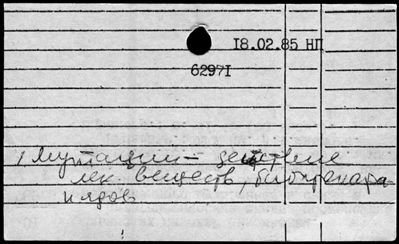 18.02.85 НП
62971
1 Мутации – действие
лек. веществ, биопрепара
и ядов